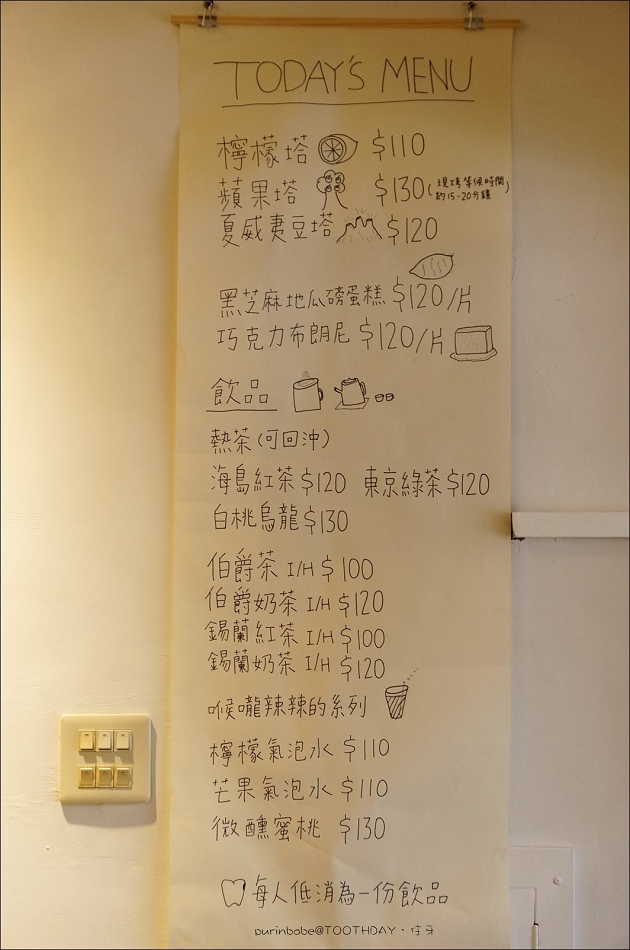 TODAY'S MENU
檸檬塔 $110
蘋果塔 $130(現烤等候時間
約15-20分鐘)
夏威夷豆塔 $120
黑芝麻地瓜磅蛋糕 $120/片
巧克力布朗尼 $120/片
飲品
熱茶(可回沖)
海島紅茶 $120 東京綠茶 $120
白桃烏龍 $130
伯爵茶 I/H $100
伯爵奶茶 I/H $120
錫蘭紅茶 I/H $100
錫蘭奶茶 I/H $120
喉嚨辣辣的系列
檸檬氣泡水 $110
芒果氣泡水 $110
微醺蜜桃 $130
每人低消為一份飲品
purinbabe@TOOTHDAY·佳牙